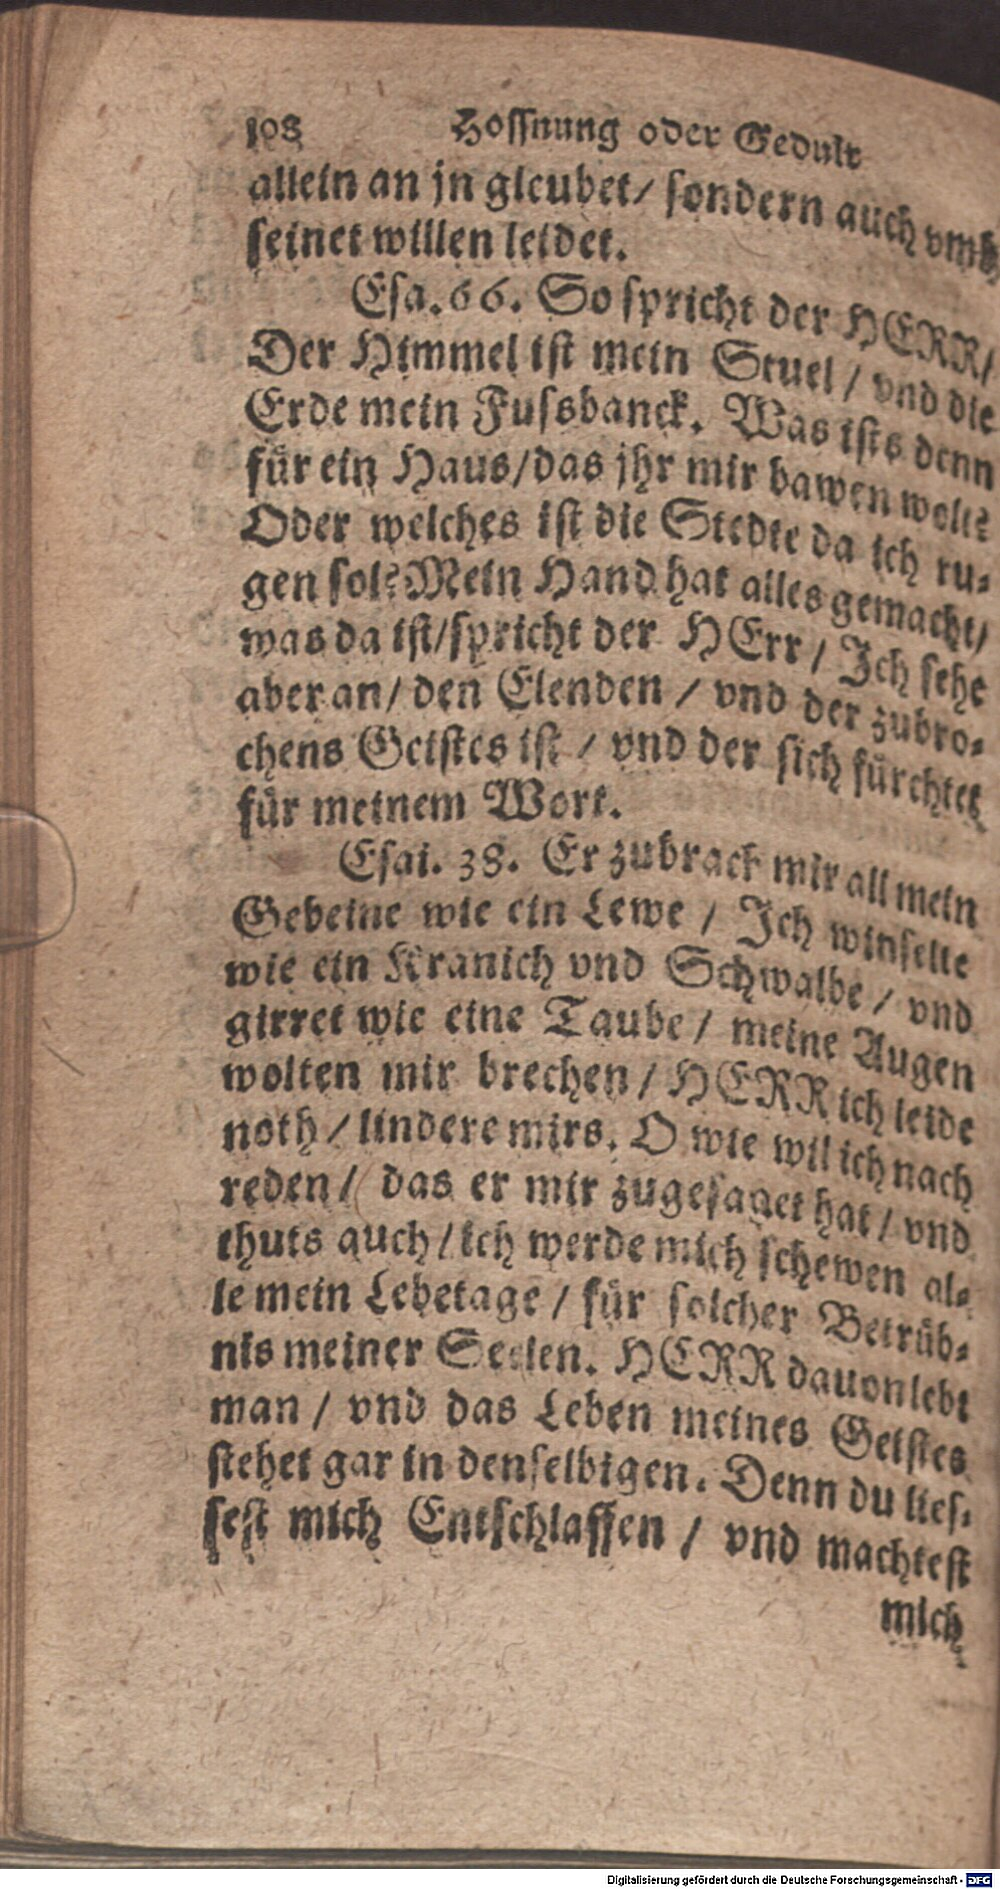 108 Hoffnung oder Gedult
allein an jn gleubet/ sondern auch vmb
seinet willen leidet.
Esa. 66. So spricht der HERR/
Der Himmel ist mein Stuel / vnd die
Erde mein Fussbanck. Was ists denn
für ein Haus/das jhr mir bawen wolt?
Oder welches ist die Stedte da ich ru-
gen sol? Mein Hand hat alles gemacht/
was da ist/spricht der HErr / Ich sehe
aber an/ den Elenden / vnd der zubro-
chens Geistes ist / vnd der sich fürchtet
für meinem Wort.
Esai. 38. Er zubrach mir all mein
Gebeine wie ein Lewe / Ich winselte
wie ein Kranich vnd Schwalbe / vnd
girret wie eine Taube / meine Augen
wolten mir brechen / HERR ich leide
noth / lindere mirs. O wie wil ich nach
reden / das er mir zugesaget hat / vnd
thuts auch / ich werde mich schewen al-
le mein Lebetage / für solcher Betrüb-
nis meiner Seelen. HERR dauon lebt
man / vnd das Leben meines Geistes
stehet gar in denselbigen. Denn du lies-
sest mich Entschlaffen / vnd machtest
mich
Digitalisierung gefördert durch die Deutsche Forschungsgemeinschaft - DFG